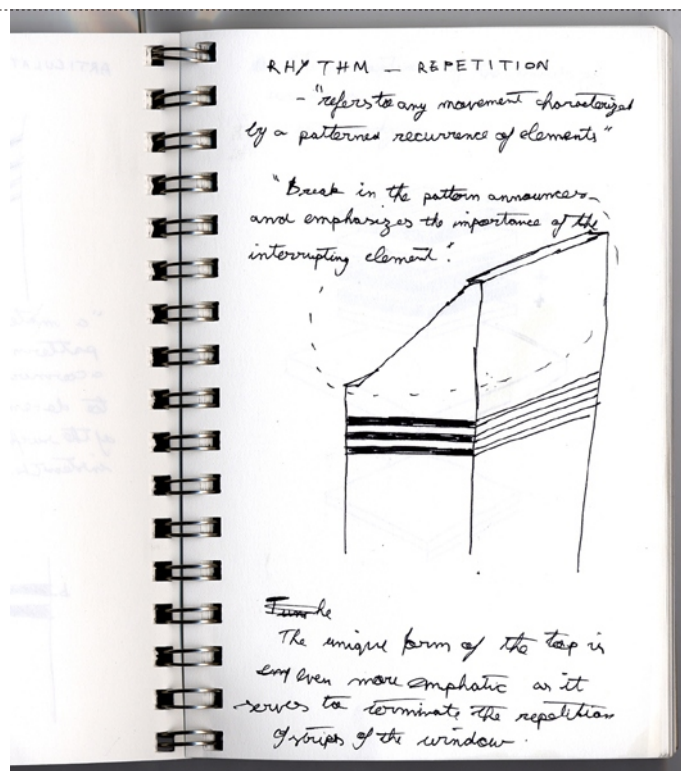 RHYTHM — REPETITION
- "refers to any movement characterized
by a patterned recurrence of elements"
"Break in the pattern announces
and emphasizes the importance of the
interrupting element".
The unique form of the top is
even more emphatic as it
serves to terminate the repetition
of strips of the window.